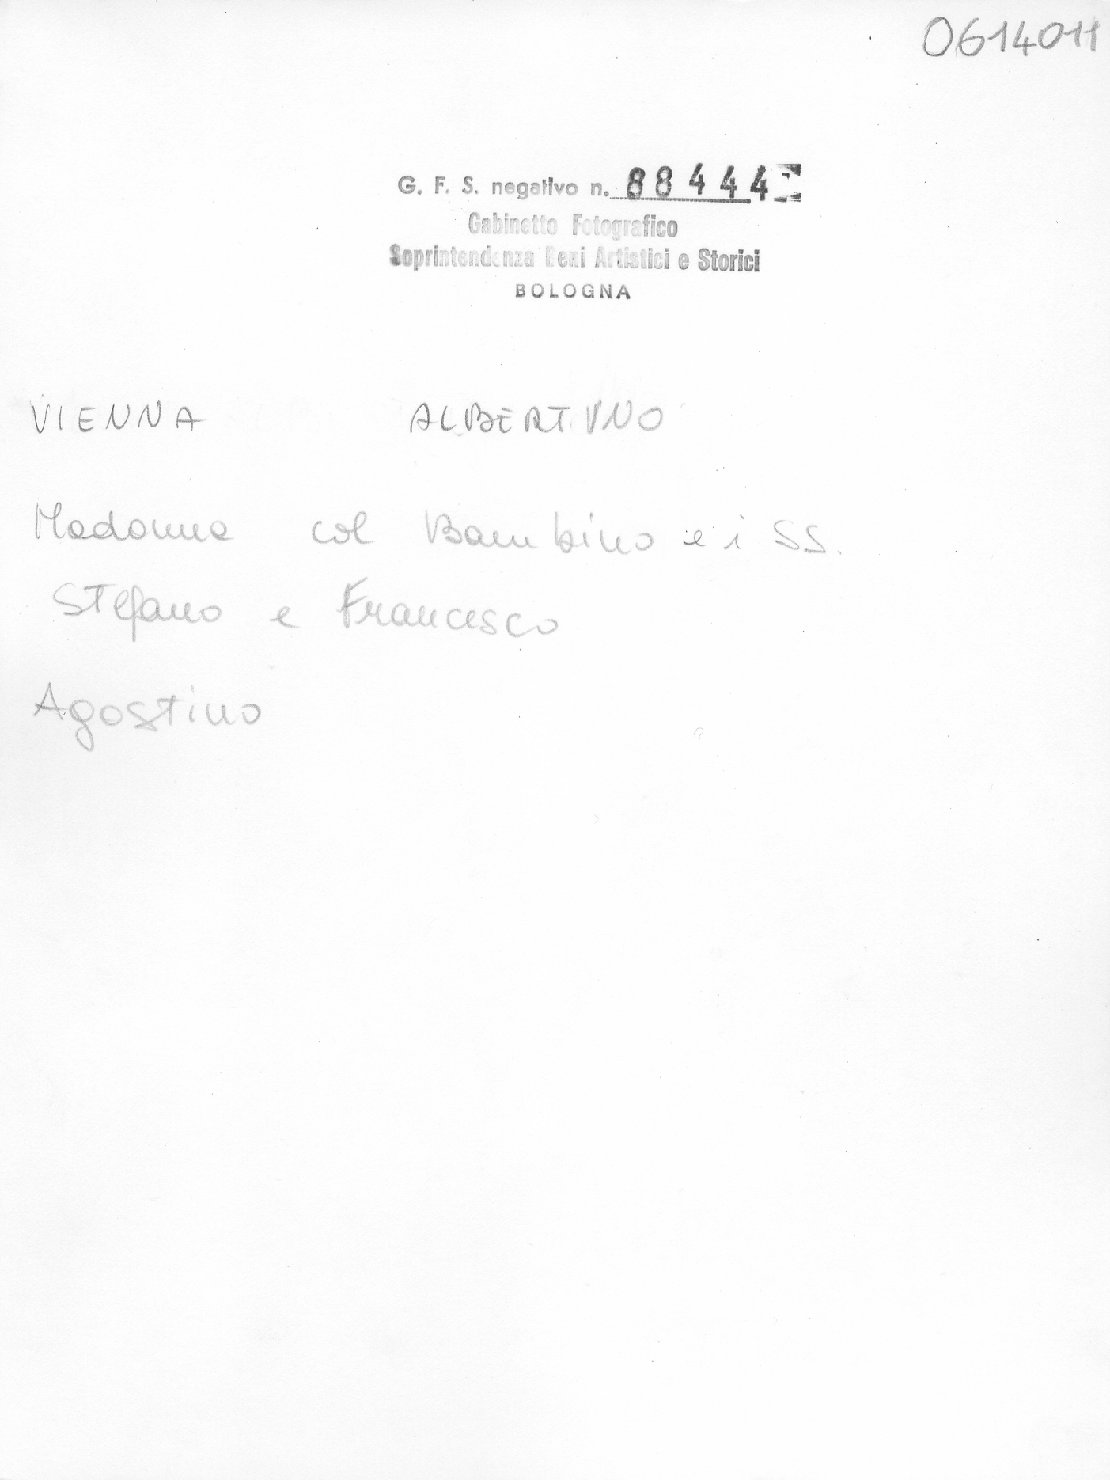 0614011
G. F. S. negativo n. 88444
Gabinetto Fotografico
Soprintendenza Beni Artistici e Storici
BOLOGNA
VIENNA ALBERTINO
Madonna col Bambino e i SS.
Stefano e Francesco
Agostino